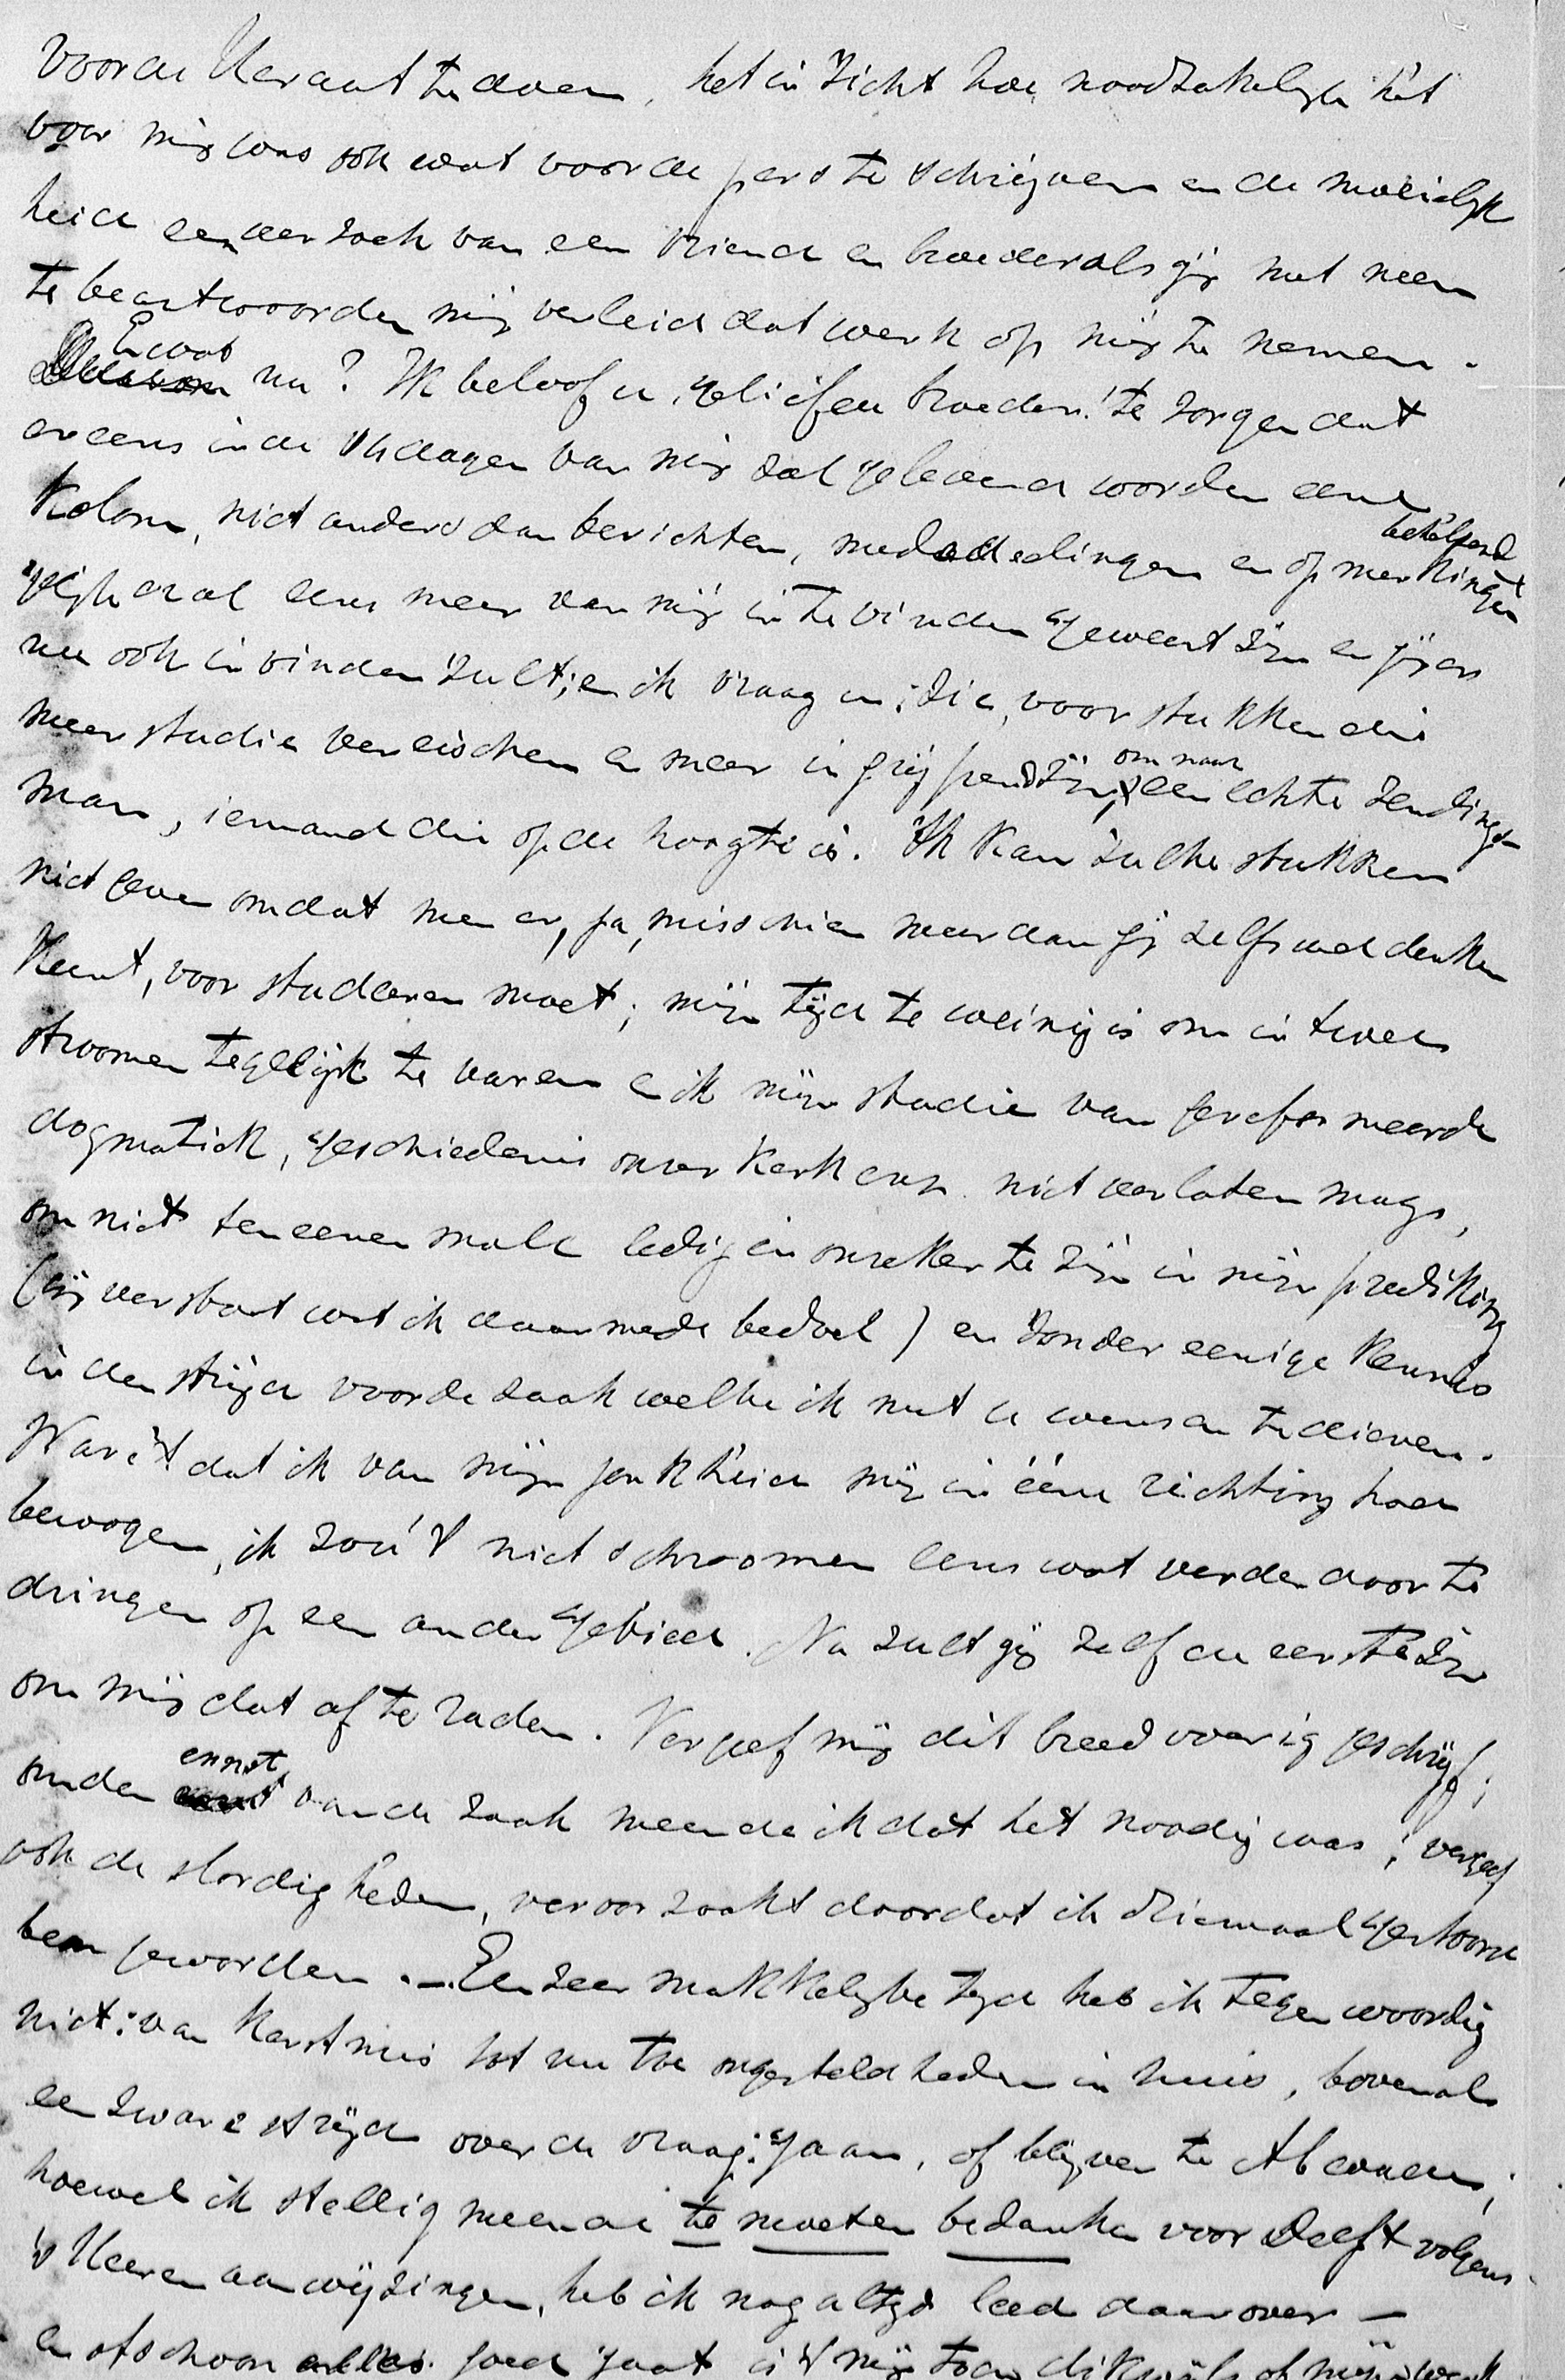 voor de Heraut te doen, het in zicht hoe noodzakelijk het
voor mij was ook wat voor de pers te schrijven en de moeielijk
heid een verzoek van een vriend en broeder als gij met neen
te beantwoorden mij verleid dat werk op mij te nemen.
En wat
nu? Ik beloof u, geliefde broeder! te zorgen dat
er eens in de dagen van mij zal geleverd worden eene
kolom, niet anders dan berichten, mededeelingen en opmerkingen
behelzend
gelijk er al eens meer van mij in te vinden geweest zijn en gij er
nu ook in vinden zult; en ik vraag u: zie, voor stukken die
meer studie vereischen en meer ingrijpend zijn, om naar een echte zendings-
man, iemand die op de hoogte is. Ik kan zulke stukken
niet geven omdat men er, ja, misschien meer dan gij zelf wel denken
kunt, voor studeeren moet; mijn tijd te weinig is om in twee
stroomen tegelijk te varen en ik mijn studie van gereformeerde
dogmatiek, geschiedenis onzer kerk enz. niet verlaten mag,
om niet ten eenen male ledig en onzeker te zijn in mijn prediking
(gij verstaat wat ik daarmede bedoel) en zonder eenige kennis
in den strijd voor de zaak welke ik met u wensch te dienen.
Ware 't dat ik van mijn jonkheid mij in ééne richting had
bewogen, ik zou 't niet schroomen eens wat verder door te
dringen op een ander gebied. Nu zult gij zelf de eerste zijn
om mij dat af te raden. Vergeef mij dit breedvoerig geschrijf;
om den ernst van de zaak meende ik dat het noodig was; vergeef
ook de slordigheden, veroorzaakt doordat ik driemaal gestoord
ben geworden. — Een zeer makkelijke tijd heb ik tegenwoordig
niet: van Kerstmis tot nu toe ongesteldheden in huis, bovenal
een zware strijd over de vraag: gaan, of blijven te
hoewel ik stellig meende te moeten bedanken voor Delft volgens
's Heeren aanwijzingen, heb ik nog altijd leed daarover —
en ofschoon alles goed gaat is 't mij toch dikwijls of mijn werk